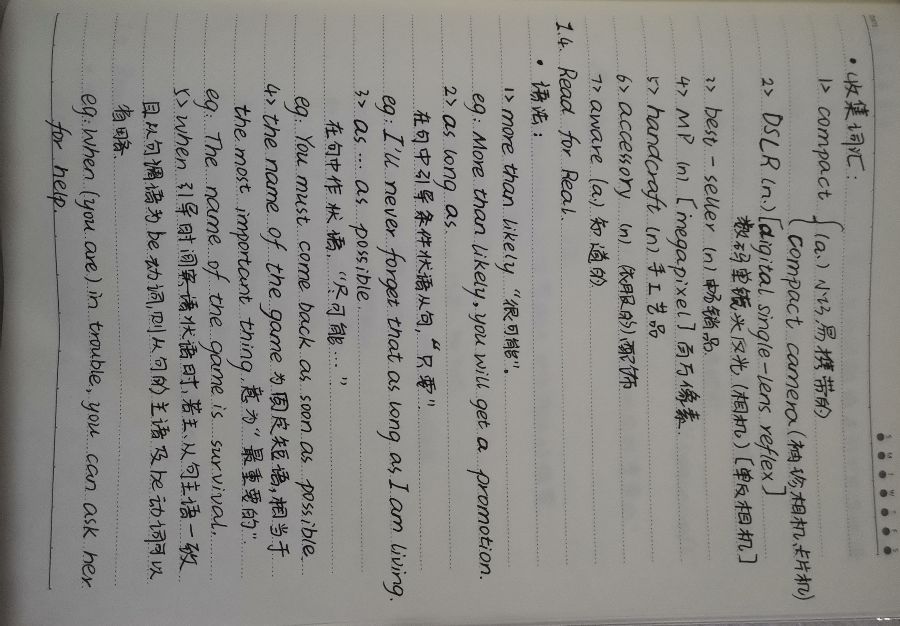 • 收集词汇:
1> compact { (a.) 小巧易携带的
compact camera (袖珍相机,卡片机)
2> DSLR (n.) [digital single-lens reflex]
数码单镜头反光(相机)[单反相机]
3> best-seller (n) 畅销品
4> MP (n) [megapixel] 百万像素.
5> handcraft (n) 手工艺品
6> accessory (n) (衣服的)配饰
7> aware (a.) 知道的
1.4. Read for Real.
• 语法:
1> more than likely "很可能".
eg: More than likely, you will get a promotion.
2> as long as
在句中引导条件状语从句,"只要"
eg: I'll never forget that as long as I am living.
3> as ... as possible
在句中作状语, "尽可能..."
eg: You must come back as soon as possible
4> the name of the game 为固定短语,相当于
the most important thing 意为"最重要的".
eg: The name of the game is survival.
5> when 引导时间状语时,若主、从句主语一致
且从句谓语为be动词,则从句的主语及be动词可以
省略.
eg: When (you are) in trouble, you can ask her
for help.
S M T W T F S